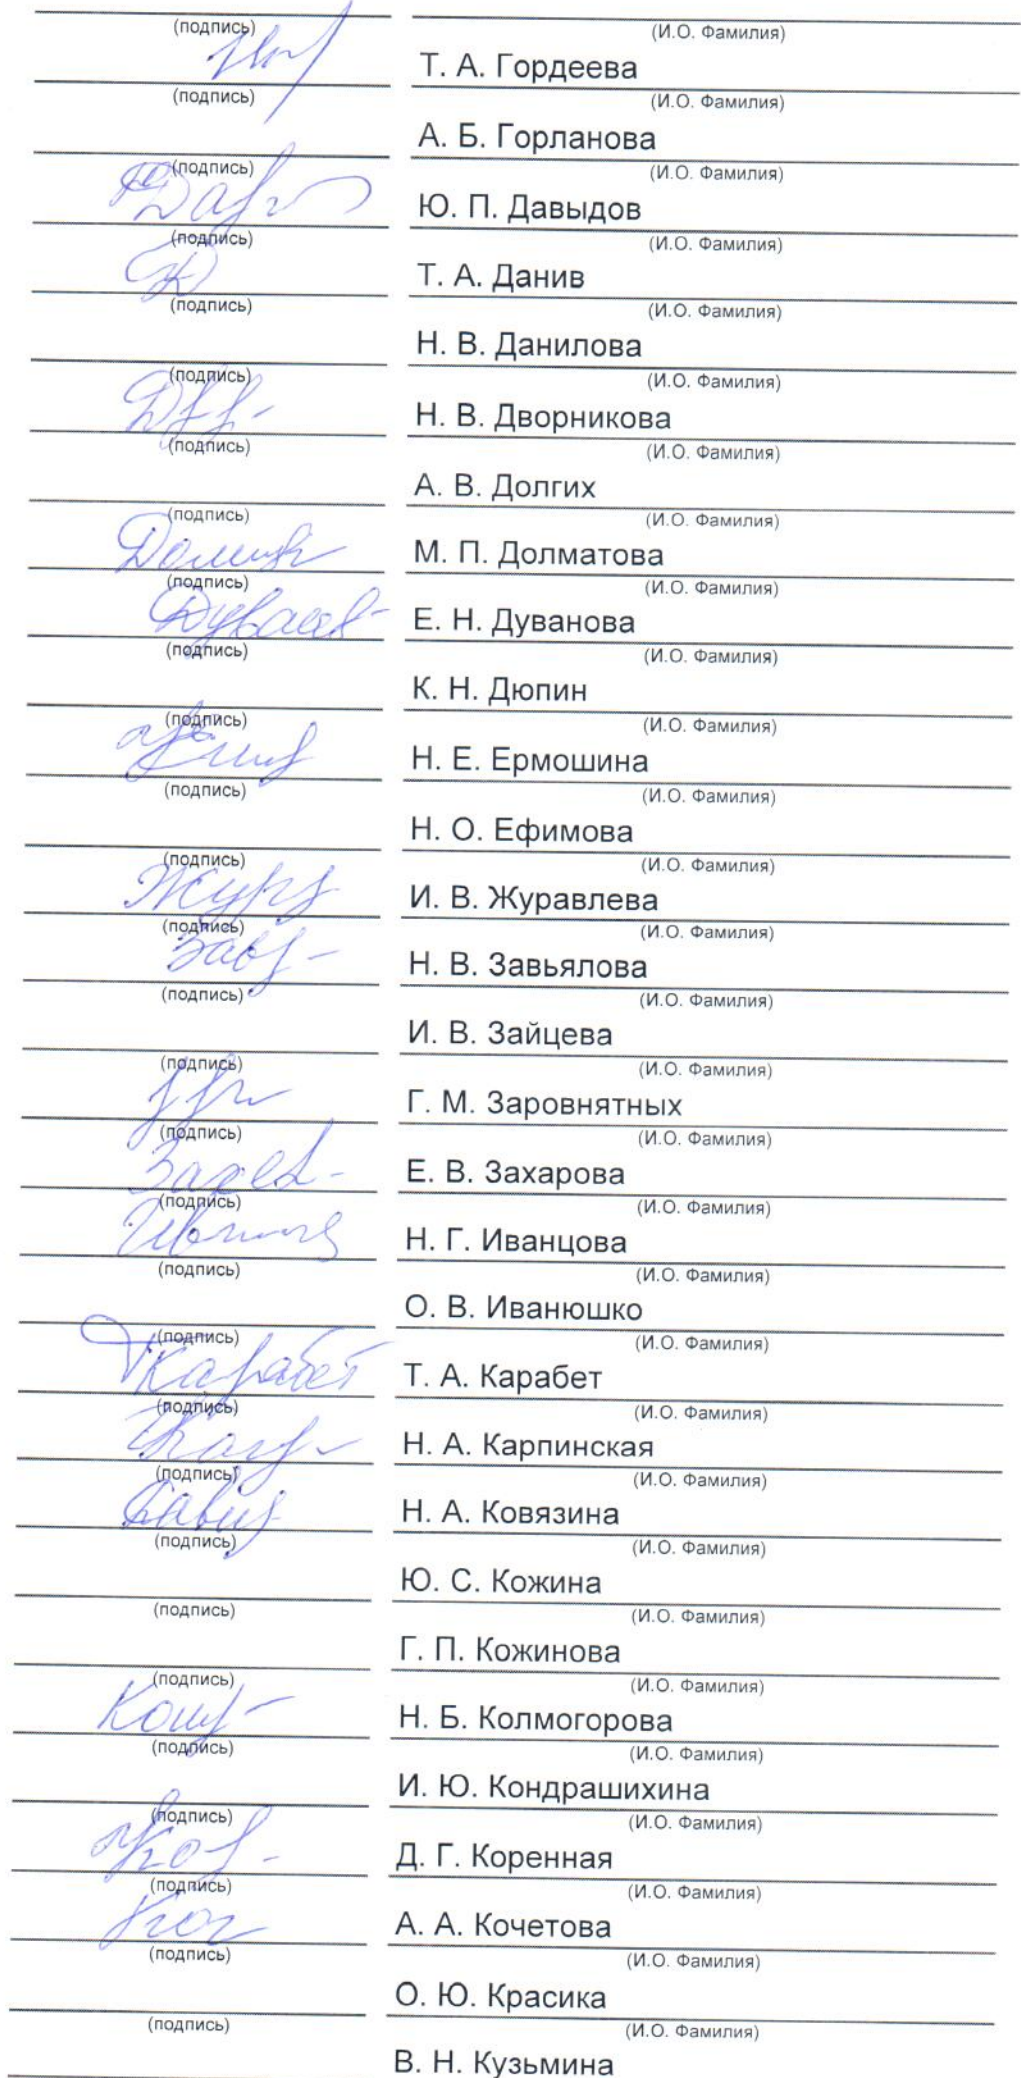 (подпись) (И.О. Фамилия)
Т. А. Гордеева
(подпись) (И.О. Фамилия)
А. Б. Горланова
(подпись) (И.О. Фамилия)
Ю. П. Давыдов
(подпись) (И.О. Фамилия)
Т. А. Данив
(подпись) (И.О. Фамилия)
Н. В. Данилова
(подпись) (И.О. Фамилия)
Н. В. Дворникова
(подпись) (И.О. Фамилия)
А. В. Долгих
(подпись) (И.О. Фамилия)
М. П. Долматова
(подпись) (И.О. Фамилия)
Е. Н. Дуванова
(подпись) (И.О. Фамилия)
К. Н. Дюпин
(подпись) (И.О. Фамилия)
Н. Е. Ермошина
(подпись) (И.О. Фамилия)
Н. О. Ефимова
(подпись) (И.О. Фамилия)
И. В. Журавлева
(подпись) (И.О. Фамилия)
Н. В. Завьялова
(подпись) (И.О. Фамилия)
И. В. Зайцева
(подпись) (И.О. Фамилия)
Г. М. Заровнятных
(подпись) (И.О. Фамилия)
Е. В. Захарова
(подпись) (И.О. Фамилия)
Н. Г. Иванцова
(подпись) (И.О. Фамилия)
О. В. Иванюшко
(подпись) (И.О. Фамилия)
Карабет Т. А. Карабет
(подпись) (И.О. Фамилия)
Н. А. Карпинская
(подпись) (И.О. Фамилия)
Н. А. Ковязина
(подпись) (И.О. Фамилия)
Ю. С. Кожина
(подпись) (И.О. Фамилия)
Г. П. Кожинова
(подпись) (И.О. Фамилия)
Н. Б. Колмогорова
(подпись) (И.О. Фамилия)
И. Ю. Кондрашихина
(подпись) (И.О. Фамилия)
Д. Г. Коренная
(подпись) (И.О. Фамилия)
А. А. Кочетова
(подпись) (И.О. Фамилия)
О. Ю. Красика
(подпись) (И.О. Фамилия)
В. Н. Кузьмина